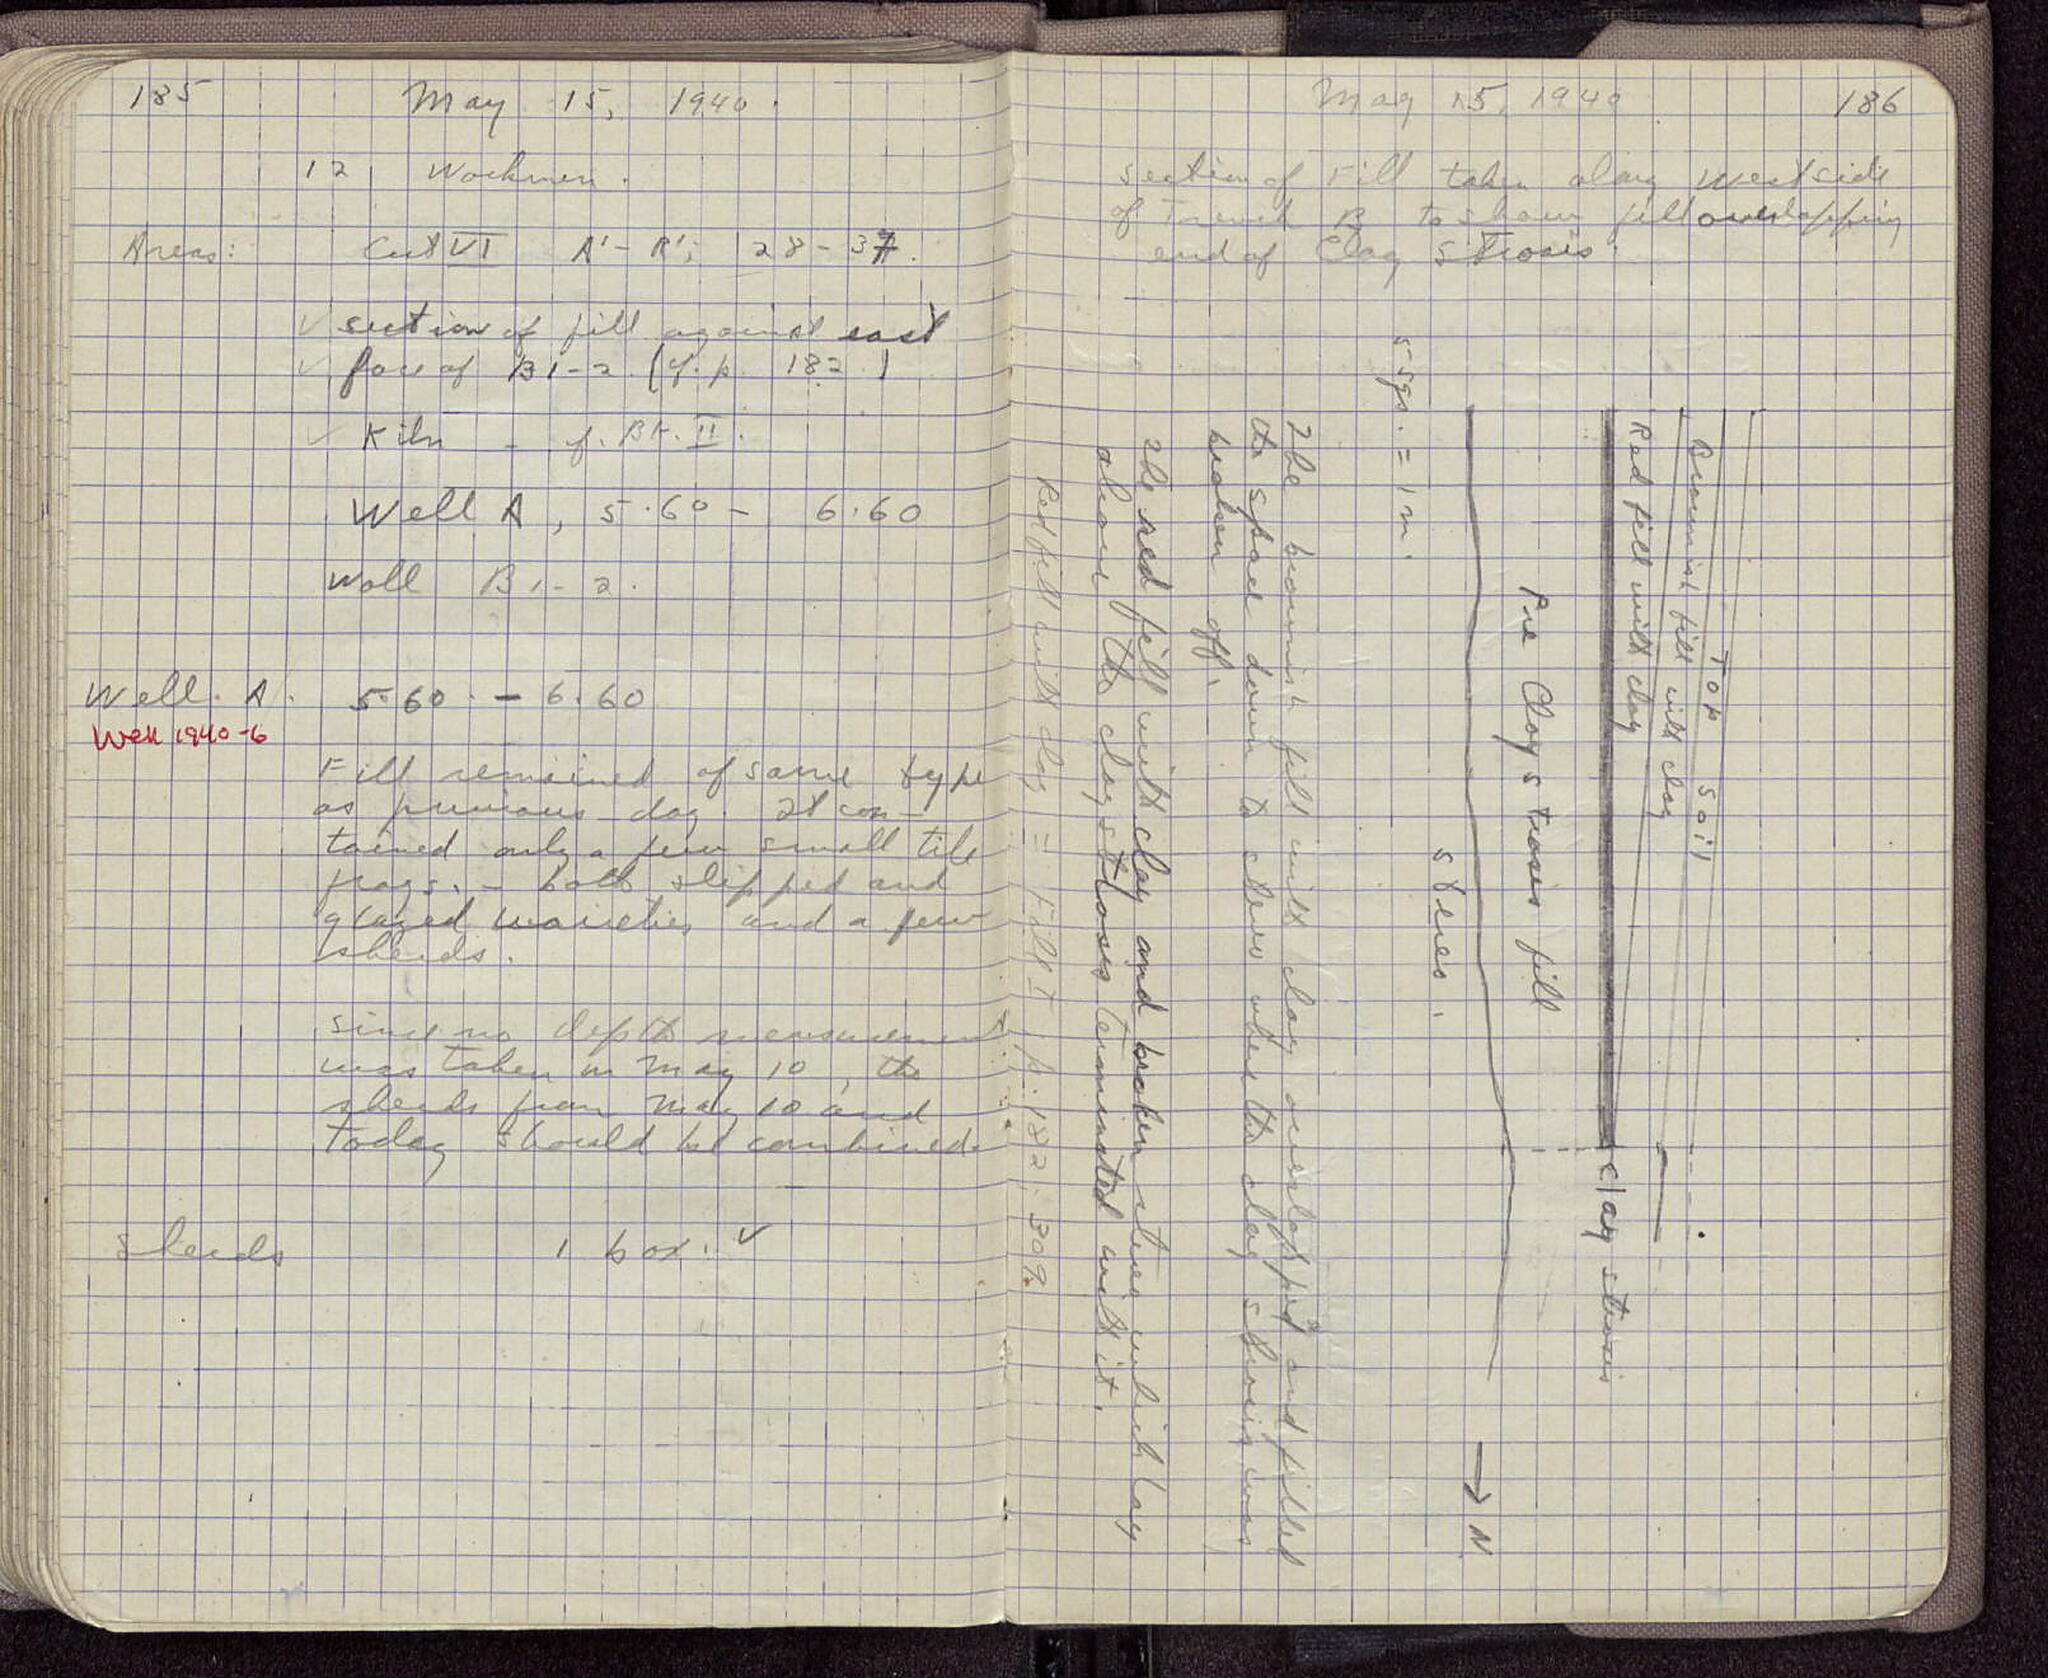 185
May 15, 1940.
12 Workmen.
Areas: Cut VI A'-R'; 28-37.
✓ section of fill against east
✓ face of B 1-2 (cf. p. 182.)
✓ Kiln - cf. Bk. II.
Well A, 5.60 - 6.60
Wall B 1-2.
Well A. 5.60 - 6.60
Well 1940-6
Fill remained of same type
as previous day. It con-
tained only a few small tile
frags. - both slipped and
glazed varieties and a few
sherds.
Since no depth measurement
was taken on May 10, the
sherds from May 10 and
today should be combined.
sherds 1 box. ✓
May 15, 1940
186
Section of Fill taken along West side
of Trench B to show fill overlapping
end of Clay Strosis.
Top Soil
Brownish fill with clay
Red fill with clay
Clay strosis
Pre Clay strosis fill
stereo.
→ N
5 sqs. = 1 m.
The brownish fill with clay overlapped and filled
the space down to stereo where the clay strosis was
broken off.
The red fill with clay and broken stereo which lay
above the clay strosis terminated with it.
Red fill with clay = Fill I, p. 182, 309.